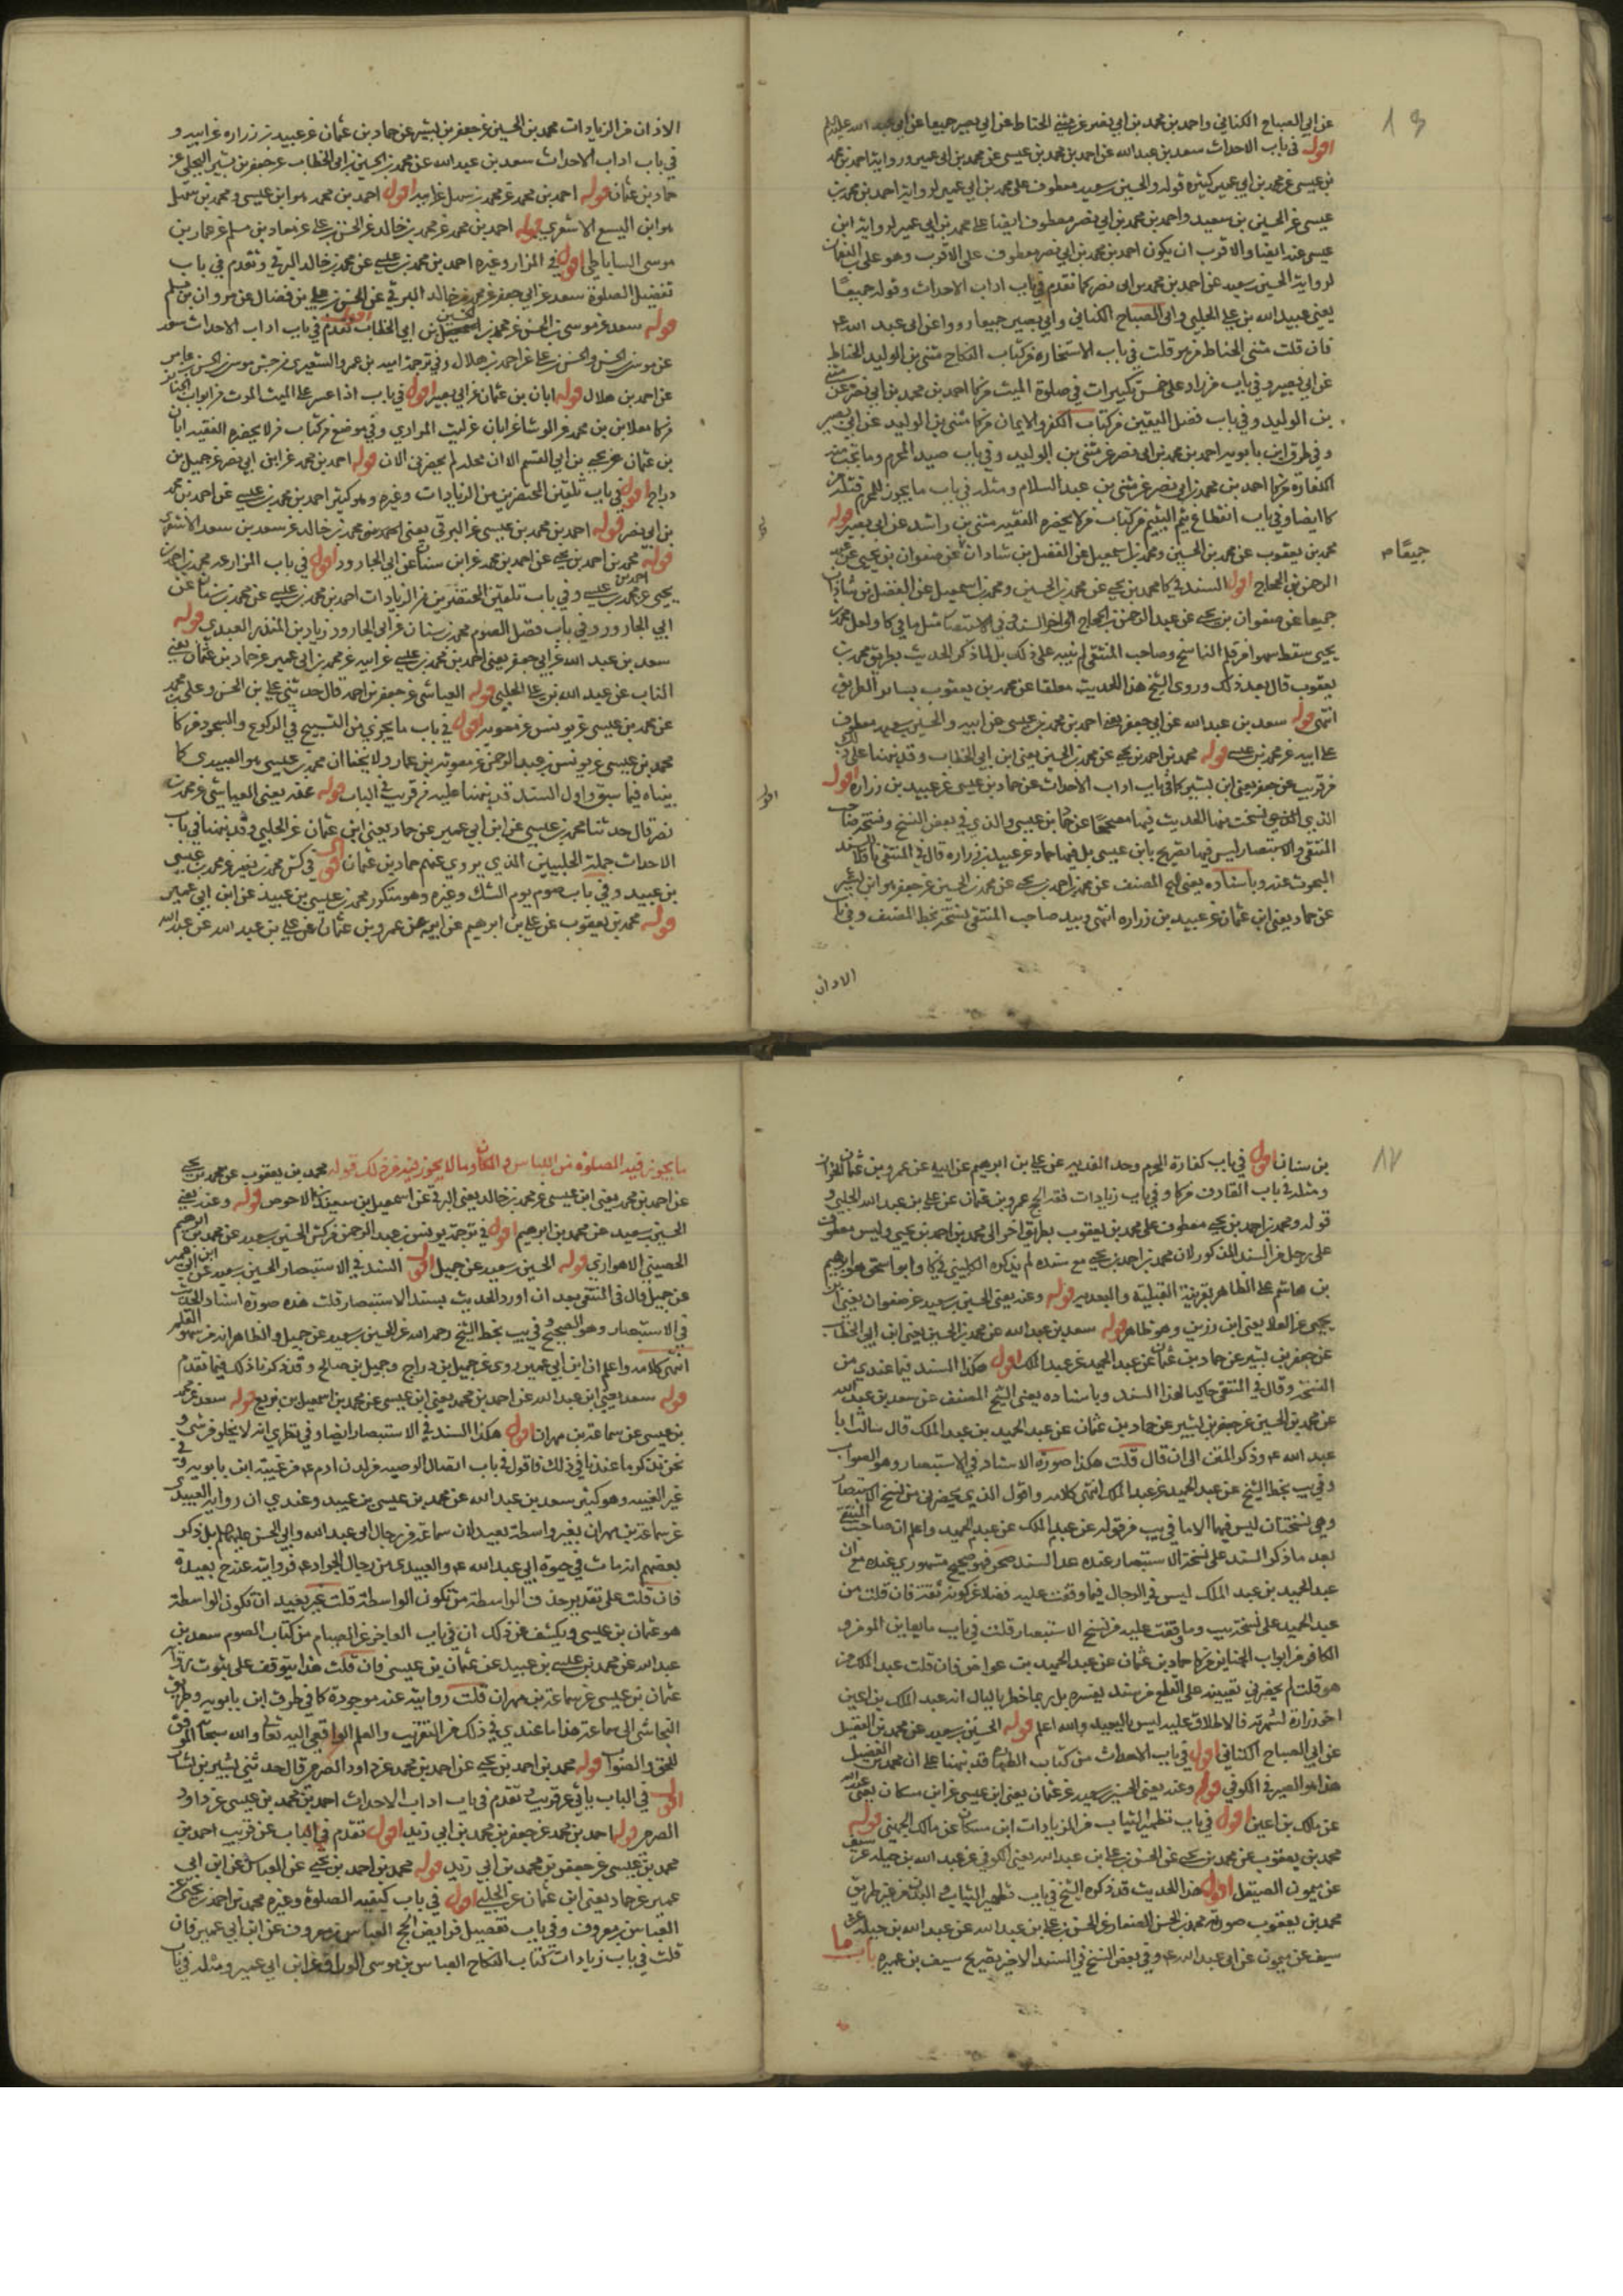 عن ابي الصباح الكناني واحمد بن محمد بن ابي نصر عن مثنى الحناط عن ابي بصير جميعا عن ابي عبد الله عليه السلام
اقول في باب الاحداث سعد بن عبد الله عن احمد بن محمد بن عيسى عن محمد بن ابي عمير ورواية احمد بن محمد
بن عيسى عن محمد بن ابي عمير كثيرة قوله والحسين بن سعيد معطوف على محمد بن ابي عمير لرواية احمد بن محمد بن
عيسى عن الحسين بن سعيد واحمد بن محمد بن ابي نصر معطوف ايضا على محمد بن ابي عمير لرواية ابن
عيسى عنه ايضا والاقرب ان يكون احمد بن محمد بن ابي نصر معطوف على الاقرب وهو على
لرواية الحسين بن سعيد عن احمد بن محمد بن ابي نصر كما تقدم في باب اداب الاحداث وقوله جميعًا
يعني عبيد الله بن علي الحلبي وابي الصباح الكناني وابي بصير جميعا رووا عن ابي عبد الله ع
فان قلت مثنى الحناط من هو قلت في باب الاستخارة من كتاب النكاح مثنى بن الوليد الحناط
عن ابي بصير وفي باب من زاد على خمس تكبيرات في صلوة الميت من كا احمد بن محمد بن ابي نصر عن مثنى
بن الوليد وفي باب فضل اليقين من كتاب الكفر والايمان من كا مثنى بن الوليد عن ابي بصير
وفي طرق ابن بابويه احمد بن محمد بن ابي نصر عن مثنى بن الوليد وفي باب صيد المحرم وما تجب منه
الكفارة من كا احمد بن محمد بن ابي نصر عن مثنى بن عبد السلام ومثله في باب ما يجوز للمحرم قتله من
كا ايضا وفي باب انقطاع يتم اليتيم من كتاب من لا يحضره الفقيه مثنى بن راشد عن ابي بصير قوله
محمد بن يعقوب عن محمد بن الحسين ومحمد بن اسمعيل عن الفضل بن شاذان عن صفوان بن يحيى عن عبد
جميعًا م
الرحمن بن الحجاج اقول السند في كا محمد بن يحيى عن محمد بن الحسين ومحمد بن اسمعيل عن الفضل بن شاذان
جميعا عن صفوان بن يحيى عن عبد الرحمن بن الحجاج الى اخر السند وفي الاستبصار مثل ما في كا ولعل محمد بن
يحيى سقط سهوا من قلم الناسخ وصاحب المنتقى لم ينبه على ذلك بل لما ذكر الحديث بطريق محمد بن
يعقوب قال بعد ذلك وروى الشيخ هذا الحديث معلقا عن محمد بن يعقوب بساير الطريق
انتهى قوله سعد بن عبد الله عن ابي جعفر يعني احمد بن محمد بن عيسى عن ابيه والحسين بن سعيد معطوف
على ابيه عن محمد بن عيسى قوله محمد بن احمد بن يحيى عن محمد بن الحسين يعني ابن ابي الخطاب وقد نبهنا على ذلك
من قريب عن جعفر يعني ابن بشير كما في باب اداب الاحداث عن حماد بن عيسى عن عبيد بن زرارة اقول
الذي نسخت فيما الحديث فيما مصححًا عن حماد بن عيسى والذي في بعض النسخ ونسختي صاحب
المنتقى والاستبصار ليس فيما تصريح بابن عيسى بل فيها حماد عن عبيد بن زرارة قال في المنتقى ناقلا للسند
المبحوث عنه وباسناده يعني الشيخ المصنف عن محمد بن احمد بن يحيى عن محمد بن الحسين عن جعفر هو ابن بشير
عن حماد يعني ابن عثمان عن عبيد بن زرارة انتهى وبيد صاحب المنتقى نسخة بخط المصنف وفي باب
الاذان
الاذان من الزيادات محمد بن الحسين عن جعفر بن بشير عن حماد بن عثمان عن عبيد بن زرارة عن ابيه و
في باب اداب الاحداث سعد بن عبد الله عن محمد بن الحسين بن ابي الخطاب عن جعفر بن بشير البجلي عن
حماد بن عثمان قوله احمد بن محمد عن محمد بن سهل عن ابيه اقول احمد بن محمد هو ابن عيسى ومحمد بن سهل
هو ابن اليسع الاشعري قوله احمد بن محمد عن محمد بن خالد عن الحسن بن علي عن معاذ بن مسلم عن عمار بن
موسى الساباطي اقول في المزار وغيره احمد بن محمد بن عيسى عن محمد بن خالد البرقي وتقدم في باب
تفضيل الصلوة سعد عن ابي جعفر عن محمد بن خالد البرقي عن الحسن بن علي بن فضال عن مروان بن مسلم
قوله سعد عن موسى بن الحسن عن محمد بن الحسين بن ابي الخطاب اقول تقدم في باب اداب الاحداث سعد
عن موسى بن الحسن والحسن بن علي عن احمد بن هلال وفي ترجمة امية بن عمرو الشعيري من جش موسى بن الحسن بن عامر
عن احمد بن هلال قوله ابان بن عثمان عن ابي بصير اقول في باب اذا عسر على الميت الموت من ابواب الجنائز
من كا معلا بن محمد عن الوشا عن ابان عن ليث المرادي وفي موضع من كتاب من لا يحضره الفقيه ابان
بن عثمان عن يحيى بن ابي القسم الا ان محله لم يحضرني الان قوله احمد بن محمد عن ابن ابي نصر عن جميل بن
دراج اقول في باب تلقين المحتضرين من الزيادات وغيره وهو كثير احمد بن محمد بن عيسى عن احمد بن محمد
بن ابي نصر قوله احمد بن محمد بن عيسى عن البرقي يعني محمد بن خالد عن سعد بن سعد الاشعري
قوله محمد بن احمد بن يحيى عن احمد بن محمد عن ابن سنان عن ابي الجارود اقول في باب المزارعه محمد بن احمد بن
يحيى عن احمد بن محمد بن عيسى وفي باب تلقين المحتضرين من الزيادات احمد بن محمد بن عيسى عن محمد بن سنان عن
ابي الجارود وفي باب فضل الصوم محمد بن سنان عن ابي الجارود زياد بن المنذر العبدي قوله
سعد بن عبد الله عن ابي جعفر يعني احمد بن محمد بن عيسى عن ابيه عن محمد بن ابي عمير عن حماد بن عثمان يعني
الناب عن عبيد الله بن علي الحلبي قوله العياشي عن جعفر بن احمد قال حدثني علي بن الحسن وعلي بن محمد
عن محمد بن عيسى عن يونس عن معوية اقول في باب ما يجزي من التسبيح في الركوع والسجود من كا
محمد بن عيسى عن يونس بن عبد الرحمن عن معوية بن عمار ولا يخفا ان محمد بن عيسى هو العبيدي كما
بيناه فيما سبق واول السند قد نبهنا عليه من قريب في الباب قوله عنه يعني العياشي عن محمد بن
نصر قال حدثنا محمد بن عيسى عن ابن ابي عمير عن حماد يعني ابن عثمان عن الحلبي وقد نبهنا في باب
الاحداث جملة الحلبيين الذي يروي عنهم حماد بن عثمان اقول في كش محمد بن نصير عن محمد بن عيسى
بن عبيد وفي باب صوم يوم الشك وغيره وهو متكرر محمد بن عيسى بن عبيد عن ابن ابي عمير
قوله محمد بن يعقوب عن علي بن ابرهيم عن ابيه عن عمرو بن عثمان عن علي بن عبد الله عن عبد الله
١٧
بن سنان اقول في باب كفارة المحرم وحد القذف عن علي بن ابرهيم عن ابيه عن عمرو بن عثمان الخزاز
ومثله في باب القاذف من كا وفي باب زيادات فقه الحج عمرو بن عثمان عن علي بن عبد الله الحلبي و
قوله ومحمد بن احمد بن يحيى معطوف على محمد بن يعقوب بطريق اخر الى محمد بن احمد بن يحيى وليس معطوف
على رجل من السند المذكور لان محمد بن احمد بن يحيى مع سنده لم يذكره الكليني في كا وابو اسحق هو ابرهيم
بن هاشم على الظاهر بقرينة القبلية والبعديه قوله وعنه يعني الحسين بن سعيد عن صفوان يعني ابن
يحيى عن العلا يعني ابن رزين وهو ظاهر قوله سعد بن عبد الله عن محمد بن الحسين يعني ابن ابي الخطاب
عن جعفر بن بشير عن حماد بن عثمان عن عبد الحميد عن عبد الملك اقول هكذا السند فيما عندي من
النسخة وقال في المنتقى حاكيا لهذا السند وباسناده يعني الشيخ المصنف عن سعد بن عبد الله
عن محمد بن الحسين عن جعفر بن بشير عن حماد بن عثمان عن عبد الحميد بن عبد الملك قال سالت ابا
عبد الله ع وذكر المتن الى ان قال قلت هكذا صورة الاسناد في الاستبصار وهو الصواب
وفي يب بخط الشيخ عن عبد الحميد عن عبد الملك انتهى كلامه واقول الذي يحضرني من نسخ الاستبصار
وهي نسختان ليس فيهما الا ما في يب من قوله عن عبد الملك عن عبد الحميد واعلم ان صاحب المنتقى
بعد ما ذكر السند على نسخة الاستبصار عنده عد السند صحر فهو صحيح مشهوري عنده مع ان
عبد الحميد بن عبد الملك ليس في الرجال فيما وقفت عليه فضلا عن كونه ثقة فان قلت من
عبد الحميد على نسخة يب وما وقفت عليه من نسخ الاستبصار قلت في باب ما يعاين المؤمن و
الكافر من ابواب الجنايز من كا حماد بن عثمان عن عبد الحميد بن عواض فان قلت عبد الملك من
هو قلت لم يحضرني تعيينه على القطع من سند يفسره بل ربما خطر بالبال انه عبد الملك بن اعين
اخو زرارة لشهرته فالاطلاق عليه ليس بالبعيد والله اعلم قوله الحسين بن سعيد عن محمد بن الفضيل
عن ابي الصباح الكناني اقول في باب الاحداث من كتاب الطهارة قد نبهنا على ان محمد بن الفضيل
هذا هو الصيرفي الكوفي قوله وعنه يعني الحسين بن سعيد عن عثمان يعني ابن عيسى عن ابن مسكان يعني عبد الله
عن ملك بن اعين اقول في باب تطهير الثياب من الزيادات ابن مسكان عن مالك الجهني قوله
محمد بن يعقوب عن محمد بن يحيى عن الحسن بن علي بن عبد الله يعني الكوفي عن عبد الله بن جبله عن سيف
عن ميمون الصيقل اقول هذا الحديث قد ذكره الشيخ في باب تطهير الثياب والبدن من غير طريق
محمد بن يعقوب صورته محمد بن الحسن الصفار عن الحسن بن علي بن عبد الله عن عبد الله بن جبله عن
سيف عن ميمون عن ابي عبد الله ع وفي بعض النسخ في السند الاخير تصريح سيف بن عميرة باب ما
ما يجوز فيه الصلوة من اللباس والمكان وما لا يجوز فيه من ذلك قوله محمد بن يعقوب عن محمد بن يحيى
عن احمد بن محمد يعني ابن عيسى عن محمد بن خالد يعني البرقي عن اسمعيل بن سعد الاحوص قوله وعنه يعني
الحسين بن سعيد عن محمد بن ابرهيم اقول في ترجمة يونس بن عبد الرحمن من كش الحسين بن سعيد عن محمد بن ابرهيم
الحضيني الاهوازي قوله الحسين بن سعيد عن جميل اقول السند في الاستبصار الحسين بن سعيد عن ابن ابي عمير
عن جميل قال في المنتقى بعد ان اورد الحديث بسند الاستبصار قلت هذه صورة اسناد الحديث
في الاستبصار وهو الصحيح وفي يب بخط الشيخ رحمه الله عن الحسين بن سعيد عن جميل والظاهر انه من سهو القلم
انتهى كلامه واعلم ان ابن ابي عمير روى عن جميل بن دراج وجميل بن صالح وقد ذكرنا ذلك فيما تقدم
قوله سعد يعني ابن عبد الله عن احمد بن محمد يعني ابن عيسى عن محمد بن اسمعيل بن بزيع قوله سعد عن محمد
بن عيسى عن سماعة بن مهران اقول هكذا السند في الاستبصار ايضا وفي نظري انه لا يخلو من شي و
نحن نذكر ما عندنا في ذلك فاقول في باب اتصال الوصيه من لدن ادم ع من غيبة ابن بابويه وفي
غير الغيبه وهو كثير سعد بن عبد الله عن محمد بن عيسى بن عبيد وعندي ان رواية العبيدي
عن سماعة بن مهران بغير واسطة بعيد لان سماعة من رجال ابي عبد الله وابي الحسن عليهما السلام بل ذكر
بعضهم انه مات في حيوة ابي عبد الله ع والعبيدي من رجال الجواد ع فروايته عنه ح بعيدة
فان قلت على تقدير حذف الواسطة من تكون الواسطة قلت غير بعيد ان تكون الواسطة
هو عثمان بن عيسى ويكشف عن ذلك ان في باب العاجز عن الصيام من كتاب الصوم سعد بن
عبد الله عن محمد بن عيسى بن عبيد عن عثمان بن عيسى فان قلت هذا يتوقف على ثبوت رواية
عثمان بن عيسى عن سماعة بن مهران قلت روايته عنه موجودة كما في طرق ابن بابويه وطريق
النجاشي الى سماعة هذا ما عندي في ذلك من التقريب والعلم الواقعي اليه تعالى والله سبحانه الموفق
للحق والصواب قوله محمد بن احمد بن يحيى عن احمد بن محمد عن داود الصرمي قال حدثني بشير بن بشار
اقول في الباب ياتي عن قريب وتقدم في باب اداب الاحداث احمد بن محمد بن عيسى عن داود
الصرمي قوله احمد بن محمد عن جعفر بن محمد بن ابي زيد اقول تقدم في الباب عن قريب احمد بن
محمد بن عيسى عن جعفر بن محمد بن ابي زيد قوله محمد بن احمد بن يحيى عن العباس عن ابن ابي
عمير عن حماد يعني ابن عثمان عن الحلبي اقول في باب كيفية الصلوة وغيره محمد بن احمد بن يحيى عن
العباس بن معروف وفي باب تفصيل فرايض الحج العباس بن معروف عن ابن ابي عمير فان
قلت في باب زيادات كتاب النكاح العباس بن موسى الوراق عن ابن ابي عمير ومثله في باب